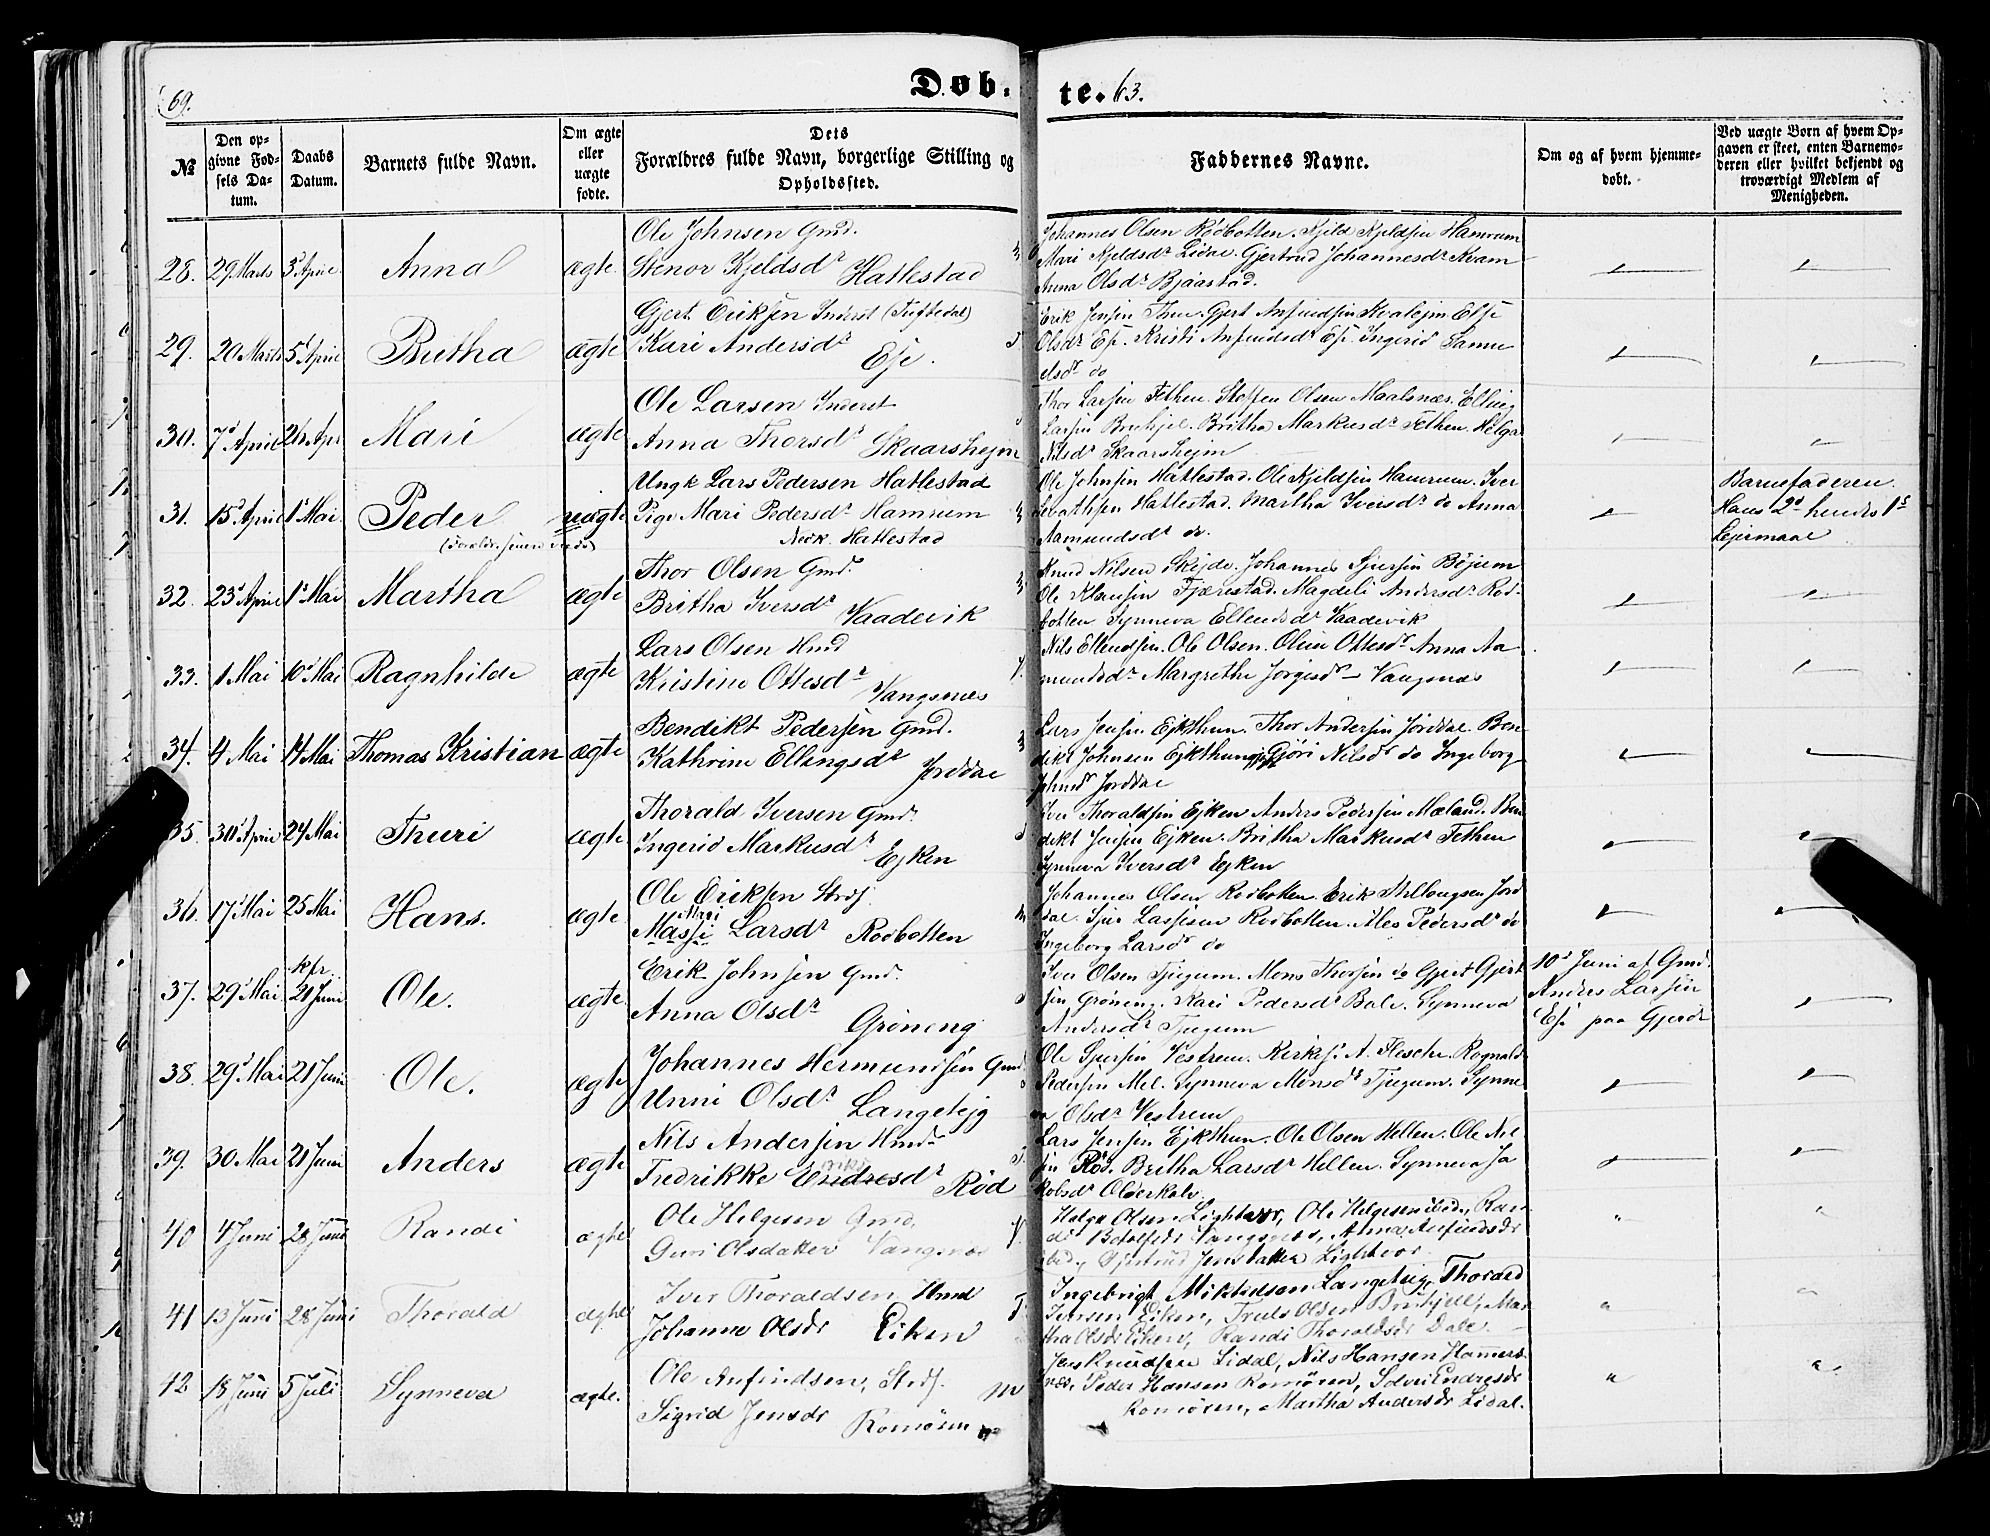 69.
Døb.
te. 63.
№
Den op-
givne Fød-
sels Da-
tum.
Daabs
Datum.
Barnets fulde Navn.
Om ægte
eller
uægte
fødte.
Dets
Forældres fulde Navn, borgerlige Stilling og
Opholdssted.
Faddernes Navne.
Om og af hvem hjemme-
døbt.
Ved uægte Børn af hvem Op-
gaven er skeet, enten Barnemo-
deren eller hvilket bekjendt og
troværdigt Medlem af
Menigheden.
28. 29 Marts 3 April Anna ægte
Ole Johnsen Gmd.
Stenor Kjeldsdr Hatlestad
Johannes Olsen Rødbotten. Kjeld Kjeldsen Hamrum
Mari Kjeldsdr Lidal. Gjertrud Johannesdr Kvam
Anna Olsdr Bjaastad.
29. 20 Marts 5 April Britha ægte
Gjert Eriksen Inderst (Tuftedal)
Kari Andersdr
Ese.
Erik Jensen Gjert Anfindsen Else
Olsdr Ese. Kristi Anfindsdr Ese. Ingerid Samu
elsdr do
30. 7d April 26 Apr Mari ægte
Ole Larsen Inderst
Anna Thorsdr Skaarshejm
Thor Larsen Fethen. Steffen Olsen Maalsnæs. Elling
Larsen Britha Markusdr Fethen. Helga
Nilsdr Skaarshejm
31. 15d April 1d Mai Peder uægte
Ungk Lars Pedersen Hatlestad
Pige Mari Pedersdr Hamrum
Nedr. Hatlestad
Ole Johnsen Hatlestad. Ole Kjeldsen Hamrum. Iver
Hatlestad. Martha Iversdr do Anna
Aamundsdr do.
Barnefaderen.
Hans 2d hendes 1st
Lejermaal
32. 23d April 1d Mai Martha ægte
Thor Olsen Gmd.
Britha Iversdr Vaadevik
Knud Nilsen Skejde. Johannes Sjursen Böjum
Ole Klausen Fjærestad. Magdeli Andersdr Rød-
botten Synneva Ellendsdr Vaadevik
33. 1 Mai 10d Mai Ragnhilde ægte
Lars Olsen Hmd
Kristine Ottesdr Vangsnæs
Nils Ellendsen. Ole Olsen. Oline Ottesdr Anna Aa
mundsdr Margrethe Jørgisdr – Vangsnæs
34. 4 Mai 14 Mai Thomas Kristian ægte
Bendikt Pedersen Gmd.
Kathrine Ellingsdr Jorddal
Lars Jensen Ejkthun. Thor Andersen Jorddal. Ben
dikt Johnsen Ejkthun. Gjöri Nilsdr do Ingeborg
Johnsdr Jorddal
35. 30d April 24 Mai Thuri ægte
Thorald Iversen Gmd.
Ingerid Markusdr Ejken
Iver Thoraldsen Ejken Anders Pedersen Mæland. Ben
dikt Jensen Ejken. Britha Markusdr Fethen
Synneva Iversdr Ejken
36. 17d Mai 25 Mai Hans. ægte
Ole Eriksen Strds.
Mari
Massi Larsdr Rødbotten
Johannes Olsen Rødbotten. Erik Jord
dal. Sjur Lassesen Rødbotten. Ales Pedersdr do
Ingeborg Larsdr do
37. 29d Mai 21 Juni Ole. ægte
Erik Johnsen Gmd.
Anna Olsdr Gröneng
Iver Olsen Tjugum. Mons Thorsen do Gjert Gjert
sen Gröneng. Kari Pedersdr Bale. Synneva
Andersdr Tjugum
10d Juni af Gmd.
Andres Larsen
Ese paa Gjerde
38. 29d Mai 21 Juni Ole. ægte
Johannes Hermundsen Gmd
Unni Olsdr Langetejg
Ole Sjursen Vestrem. Kirkes. A. Flesche. Rognald
Pedersen Mel. Synneva Monsdr Tjugum. Synne
va Olsdr Vestrem
39. 30 Mai 21 Juni Anders ægte
Nils Andersen Hmd.
Fredrikke Endresdr Röd
Lars Jensen Ejkthun. Ole Olsen Hellen. Ole Nil
sen Röd. Britha Larsdr Hellen. Synneva Ja
kobsdr
40 4 Juni 28 Juni Randi ægte
Ole Helgesen Gmd.
Guri Olsdatter Vangsnæs
Helge Olsen Lightvor, Ole Helgesen ibid., Ran-
di Botolfsdr Vangsnæs, Anna Anfindsdr
ibid., Gjertrud Jensdatter Lightvor.
41 13 Juni 28 Juni Thorald ægte
Iver Thoraldsen Hmd
Johanne Olsdr Eiken
Ingebrigt Mikkelsen Langeteig, Thorald
Iversen Eiken, Truls Olsen Brukjell, Mar
tha Olsdr Eiken, Randi Thoraldsdr Dale.
42 18 Juni 5 Juli Synneva ægte.
Ole Anfindsen, Strds.
Sigrid Jensdr Romören
Jens Knudsen Lidal, Nils Hansen Hammers
næs, Peder Hansen Romören, Sølvi Endresdr
Romören, Martha Andersdr Lidal.